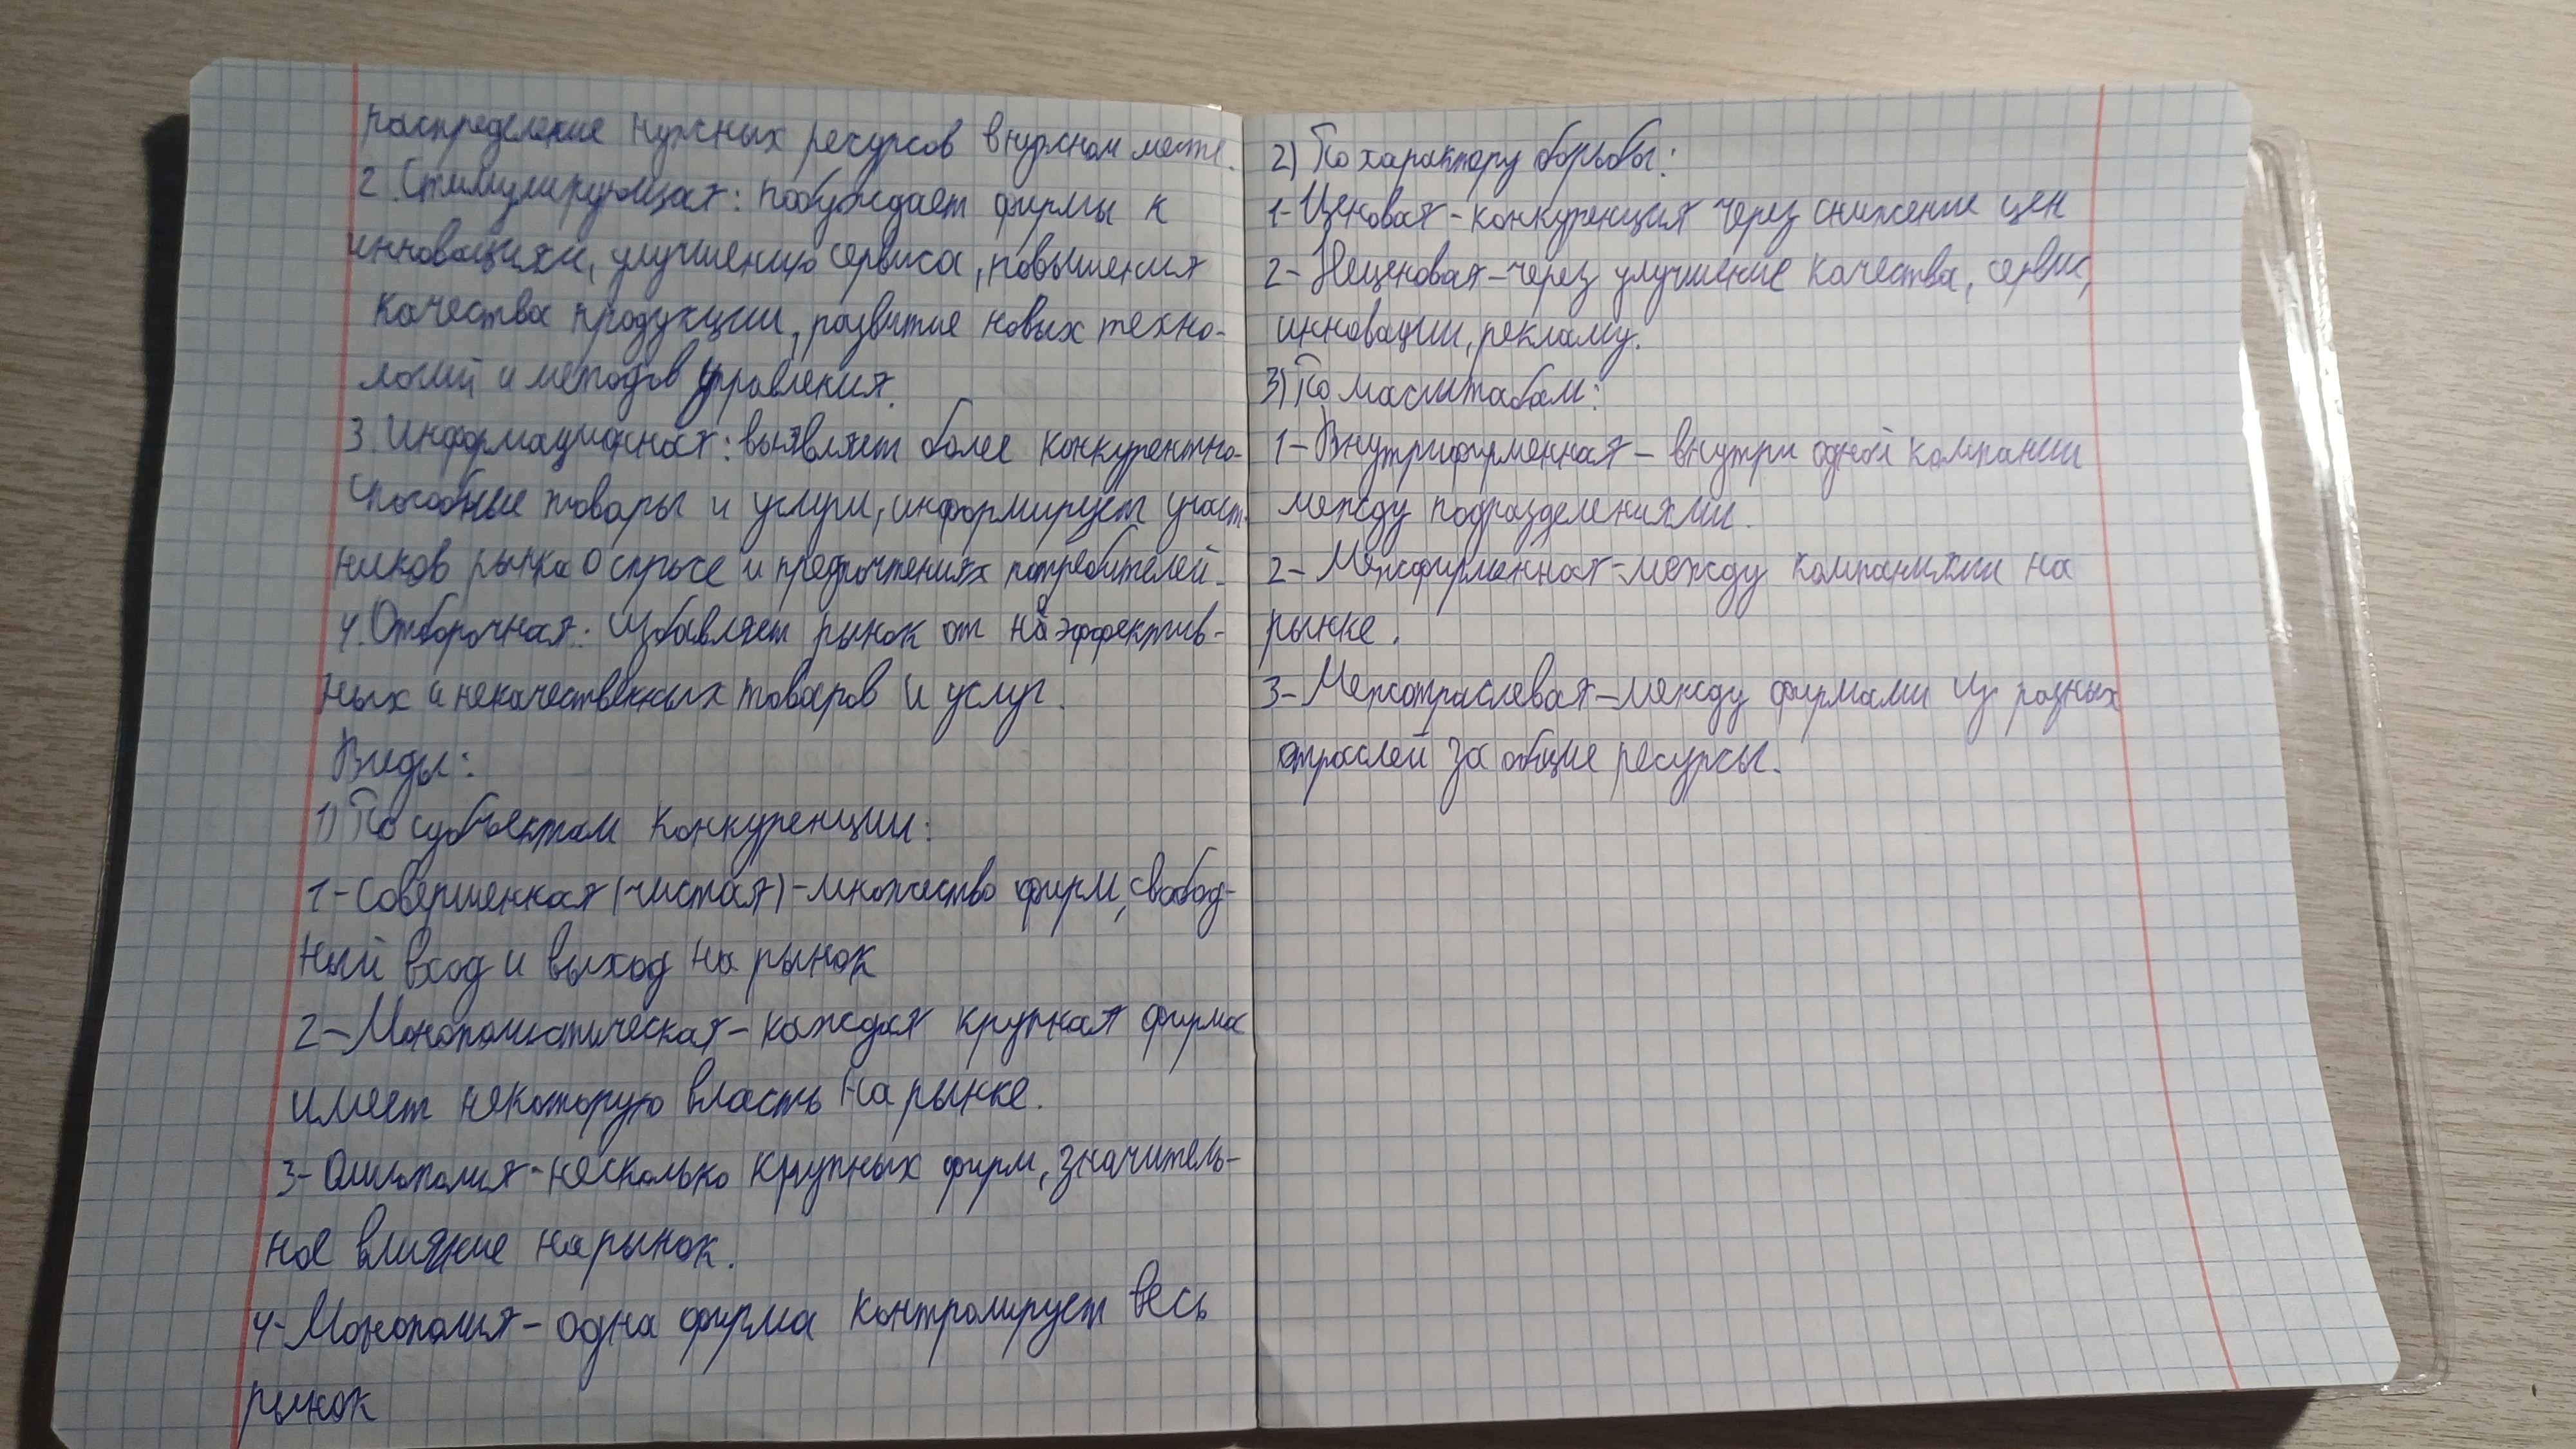 распределение нужных ресурсов в нужном месте.
2. Стимулирующая: побуждает фирмы к
инновациям, улучшению сервиса, повышения
качества продукции, развитие новых техно-
логий и методов управления.
3. Информационная: выявляет более конкурентно-
способные товары и услуги, информирует участ-
ников рынка о спросе и предпочтениях потребителей.
4. Отборочная: избавляет рынок от неэффектив-
ных и некачественных товаров и услуг.
Виды:
1) По субъектам конкуренции:
1- Совершенная (чистая) - множество фирм, свобод-
ный вход и выход на рынок
2- Монополистическая - каждая крупная фирма
имеет некоторую власть на рынке.
3- Олигополия - несколько крупных фирм, значитель-
ное влияние на рынок.
4- Монополия - одна фирма контролирует весь
рынок
2) По характеру борьбы:
1- Ценовая - конкуренция через снижение цен
2- Неценовая - через улучшение качества, сервис,
инновации, рекламу.
3) По масштабам:
1- Внутрифирменная - внутри одной компании
между подразделениями.
2- Межфирменная - между компаниями на
рынке.
3- Межотраслевая - между фирмами из разных
отраслей за общие ресурсы.